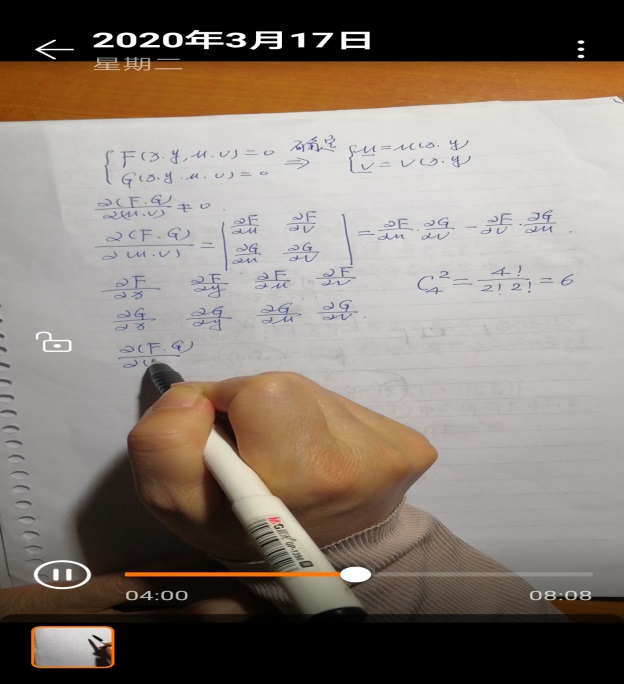 2020年3月17日
星期二
{ F(x.y,u.v)=0 确定 ⇒ { u=u(x.y)
{ G(x.y.u.v)=0 { v=v(x.y)
∂(F.G)/∂(u.v) ≠ 0.
∂(F.G)/∂(u.v) = | ∂F/∂u ∂F/∂v ; ∂G/∂u ∂G/∂v | = ∂F/∂u · ∂G/∂v - ∂F/∂v · ∂G/∂u.
∂F/∂x ∂F/∂y ∂F/∂u ∂F/∂v C₄² = 4!/2!2! = 6
∂G/∂x ∂G/∂y ∂G/∂u ∂G/∂v.
∂(F.G)
∂(
M&G
04:00 08:08